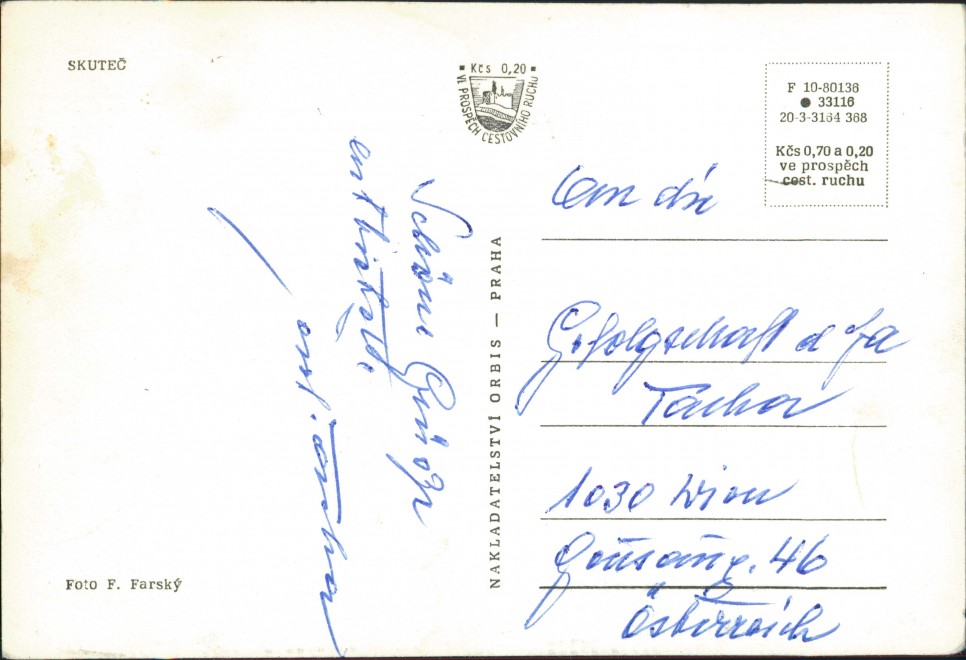 SKUTEČ
Kčs 0,20
VE PROSPĚCH CESTOVNÍHO RUCHU
F 10-80136
33116
20-3-3164 368
Kčs 0,70 a 0,20
ve prospěch
cest. ruchu
Schöne Grüße
NAKLADATELSTVÍ ORBIS — PRAHA
An die
Gefolgschaft d Fa
Tucha
1030 Wien
46
Österreich
Foto F. Farský